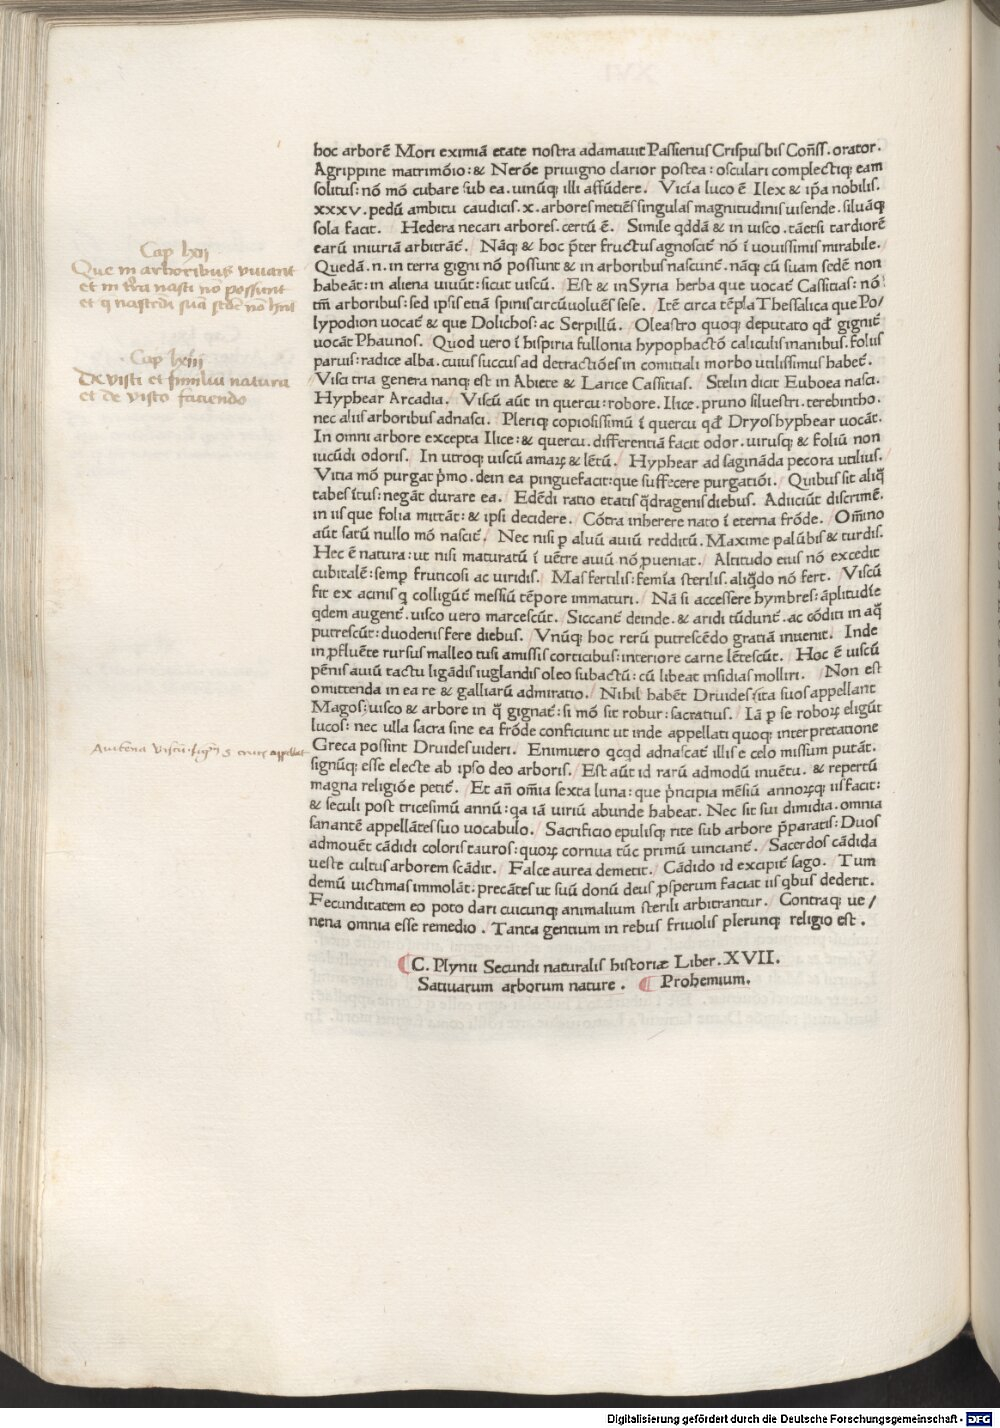 hoc arborē Mori eximiā etate nostra adamauit Passienus Crispus bis Cōn̄ss. orator.
Agrippine matrimōio: & Nerōe priuigno clarior postea: osculari complectiq; eam
solitus: nō mō cubare sub ea. uinūq; illi affūdere. Vicīa luco ē Ilex & ip̄a nobilis.
xxxv. pedū ambitu caudicis. x. arbores metiēs singulas magnitudinis uisende. siluāq;
sola facit. Hedera necari arbores. certū ē. Simile qddā & in uisco. tāetsi tardiorē
earū iniuriā arbitrāt̄. Nāq; & hoc p̄ter fructus agnoscit̄ nō ī nouissimis mirabile.
Quedā. n. in terra gigni nō possunt & in arboribus nascunt̄. nāq; cū suam sedē non
habeāt: in aliena uiuūt: sicut uiscū. Est & in Syria herba que uocat̄ Cassitias: nō
tm̄ arboribus: sed ipsis etiā spinis circūuoluēs sese. Itē circa tēpla Thessalica que Po/
lypodion uocat̄ & que Dolichos: ac Serpillū. Oleastro quoq; deputato qd̄ gignit̄
uocāt Phaunos. Quod uero ī hispiria fullonia hypophactō caliculis inanibus. foliis
paruis: radice alba. cuius succus ad detractiōes in comitiali morbo utilissimus habet̄.
Visci tria genera nanq; est in Abiete & Larice Cassitias. Stelin dicit Euboea nasci.
Hyphear Arcadia. Viscū aūt in quercu: robore. Ilice. pruno siluestri. terebintho.
nec aliis arboribus adnasci. Pleriq; copiosissimū ī quercu qd̄ Dryos hyphear uocāt.
In omni arbore excepta Ilice: & quercu. differentiā facit odor. uirusq; & foliū non
iucūdi odoris. In utroq; uiscū amaꝝ & lētū. Hyphear ad sagināda pecora utilius.
Vitia mō purgat p̄mo. dein ea pinguefacit: que suffecere purgatiōi. Quibus sit aliq̄
tabes ītus: negāt durare ea. Edēdi ratio etatis q̄dragenis diebus. Adiiciūt discrimē.
in iis que folia mittāt: & ipsi decidere. Cōtra inherere nato ī eterna frōde. Om̄ino
aūt satū nullo mō nascit̄. Nec nisi p aluū auiū redditū. Maxime palūbis & turdis.
Hec ē natura: ut nisi maturatū ī uētre auiū nō ꝓueniat. Altitudo eius nō excedit
cubitalē: semp fruticosi ac uiridis. Mas fertilis: femīa sterilis. aliq̄do nō fert. Viscū
fit ex acinis q colligūt̄ messiū tēpore immaturi. Nā si accessere hymbres: āplitudīe
qdem augent̄. uisco uero marcescūt. Siccant̄ deinde. & aridi tūdunt̄. ac cōditi in aq̄
putrescūt: duodenis fere diebus. Vnūq; hoc rerū putrescēdo gratiā inuenit. Inde
in ꝓfluēte rursus malleo tusi amissis corticibus: interiore carne lētescūt. Hoc ē uiscū
pēnis auiū tactu ligādis iuglandis oleo subactū: cū libeat insidias moliri. Non est
omittenda in ea re & galliarū admiratio. Nihil habēt Druides (ita suos appellant
Magos: uisco & arbore in q̄ gignat̄: si mō sit robur: sacratius. Iā p se roboꝝ eligūt
lucos: nec ulla sacra sine ea frōde conficiunt ut inde appellati quoq; interpretatione
Greca possint Druides uideri. Enimuero qcqd adnascat̄ illis e celo missum putāt.
signūq; esse electe ab ipso deo arboris. Est aūt id rarū admodū inuētu. & repertū
magna religiōe petit̄. Et an̄ om̄ia sexta luna: que p̄ncipia mēsiū annoꝝq; iis facit:
& seculi post tricesimū annū: qa iā uiriū abunde habeat. Nec sit sui dimidia. omnia
sanantē appellātes suo uocabulo. Sacrificio epulisq; rite sub arbore p̄paratis: Duos
admouēt cādidi coloris tauros: quoꝝ cornua tūc primū uinciant̄. Sacerdos cādida
ueste cultus arborem scādit. Falce aurea demetit. Cādido id excipit̄ sago. Tum
demū uictimas immolāt: precātes ut suū donū deus ꝓsperum faciat iis qbus dederit.
Fecunditatem eo poto dari cuicunq; animalium sterili arbitrantur. Contraq; ue/
nena omnia esse remedio. Tanta gentium in rebus friuolis plerunq; religio est.
C. Plynii Secundi naturalis historiæ Liber. XVII.
Satiuarum arborum nature. Prohemium.
Cap lxii
Que in arboribus viuant
et in terra nasci nō possunt
Cap lxiii
De visci et similiū natura
et de visco faciendo
Digitalisierung gefördert durch die Deutsche Forschungsgemeinschaft - DFG